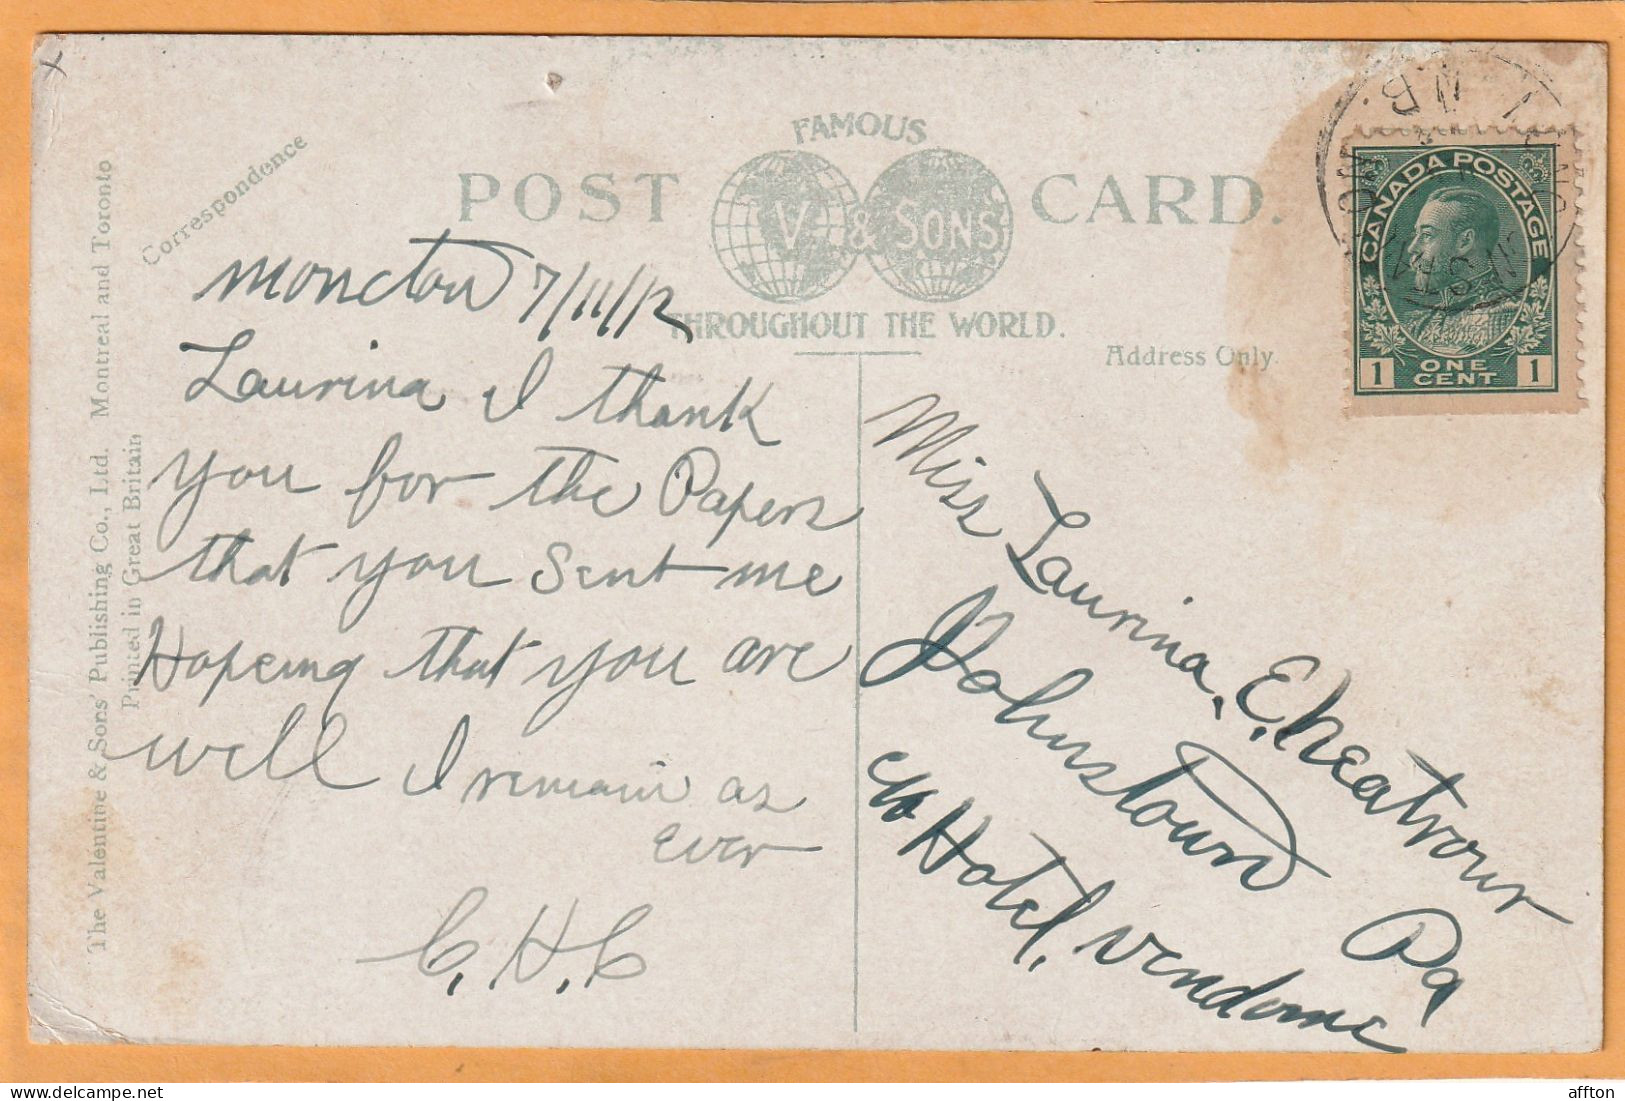 FAMOUS
POST V. & SONS CARD.
THROUGHOUT THE WORLD.
Correspondence
Address Only.
The Valentine & Sons' Publishing Co., Ltd. Montreal and Toronto
Printed in Great Britain
Moncton 7/11/12
Laurina I thank
you for the Papers
that you Sent me
Hopeing that you are
well I remain as
ever
C. H. C
Miss Laurina E. Cheatrour
Johnstown Pa
c/o Hotel. Vendome
CANADA POSTAGE
1 ONE CENT 1
N.B.
affton